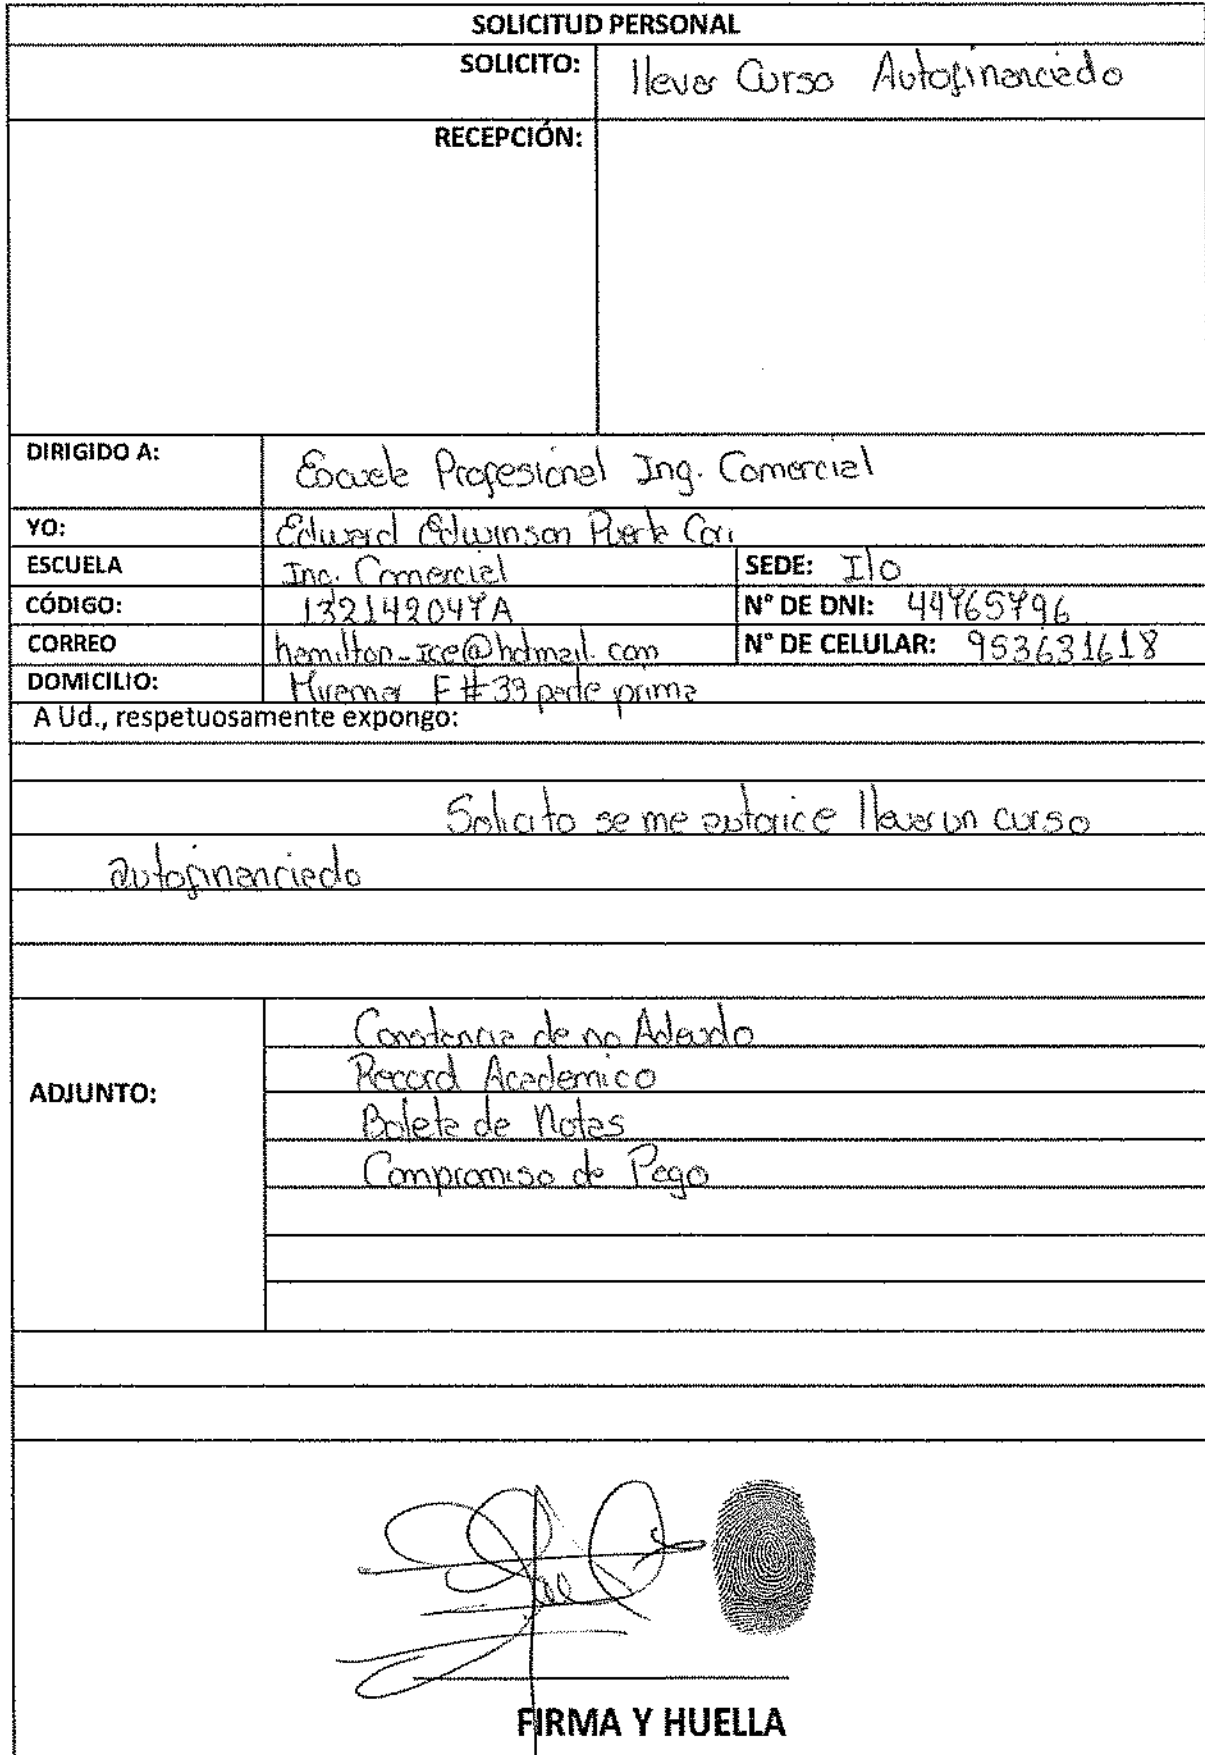 SOLICITUD PERSONAL
SOLICITO: llevar Curso Autofinanciado
RECEPCIÓN:
DIRIGIDO A: Escuela Profesional Ing. Comercial
YO: Edward Edwinson Puerta Cori
ESCUELA Ing. Comercial SEDE: Ilo
CÓDIGO: 132142047A N° DE DNI: 44765796
CORREO hamilton-ice@hotmail.com N° DE CELULAR: 953631618
DOMICILIO: Miramar F #39 parte prima
A Ud., respetuosamente expongo:
Solicito se me autorice llevar un curso
autofinanciado
Constancia de no Adeudo
Record Academico
ADJUNTO:
Boleta de Notas
Compromiso de Pago
FIRMA Y HUELLA